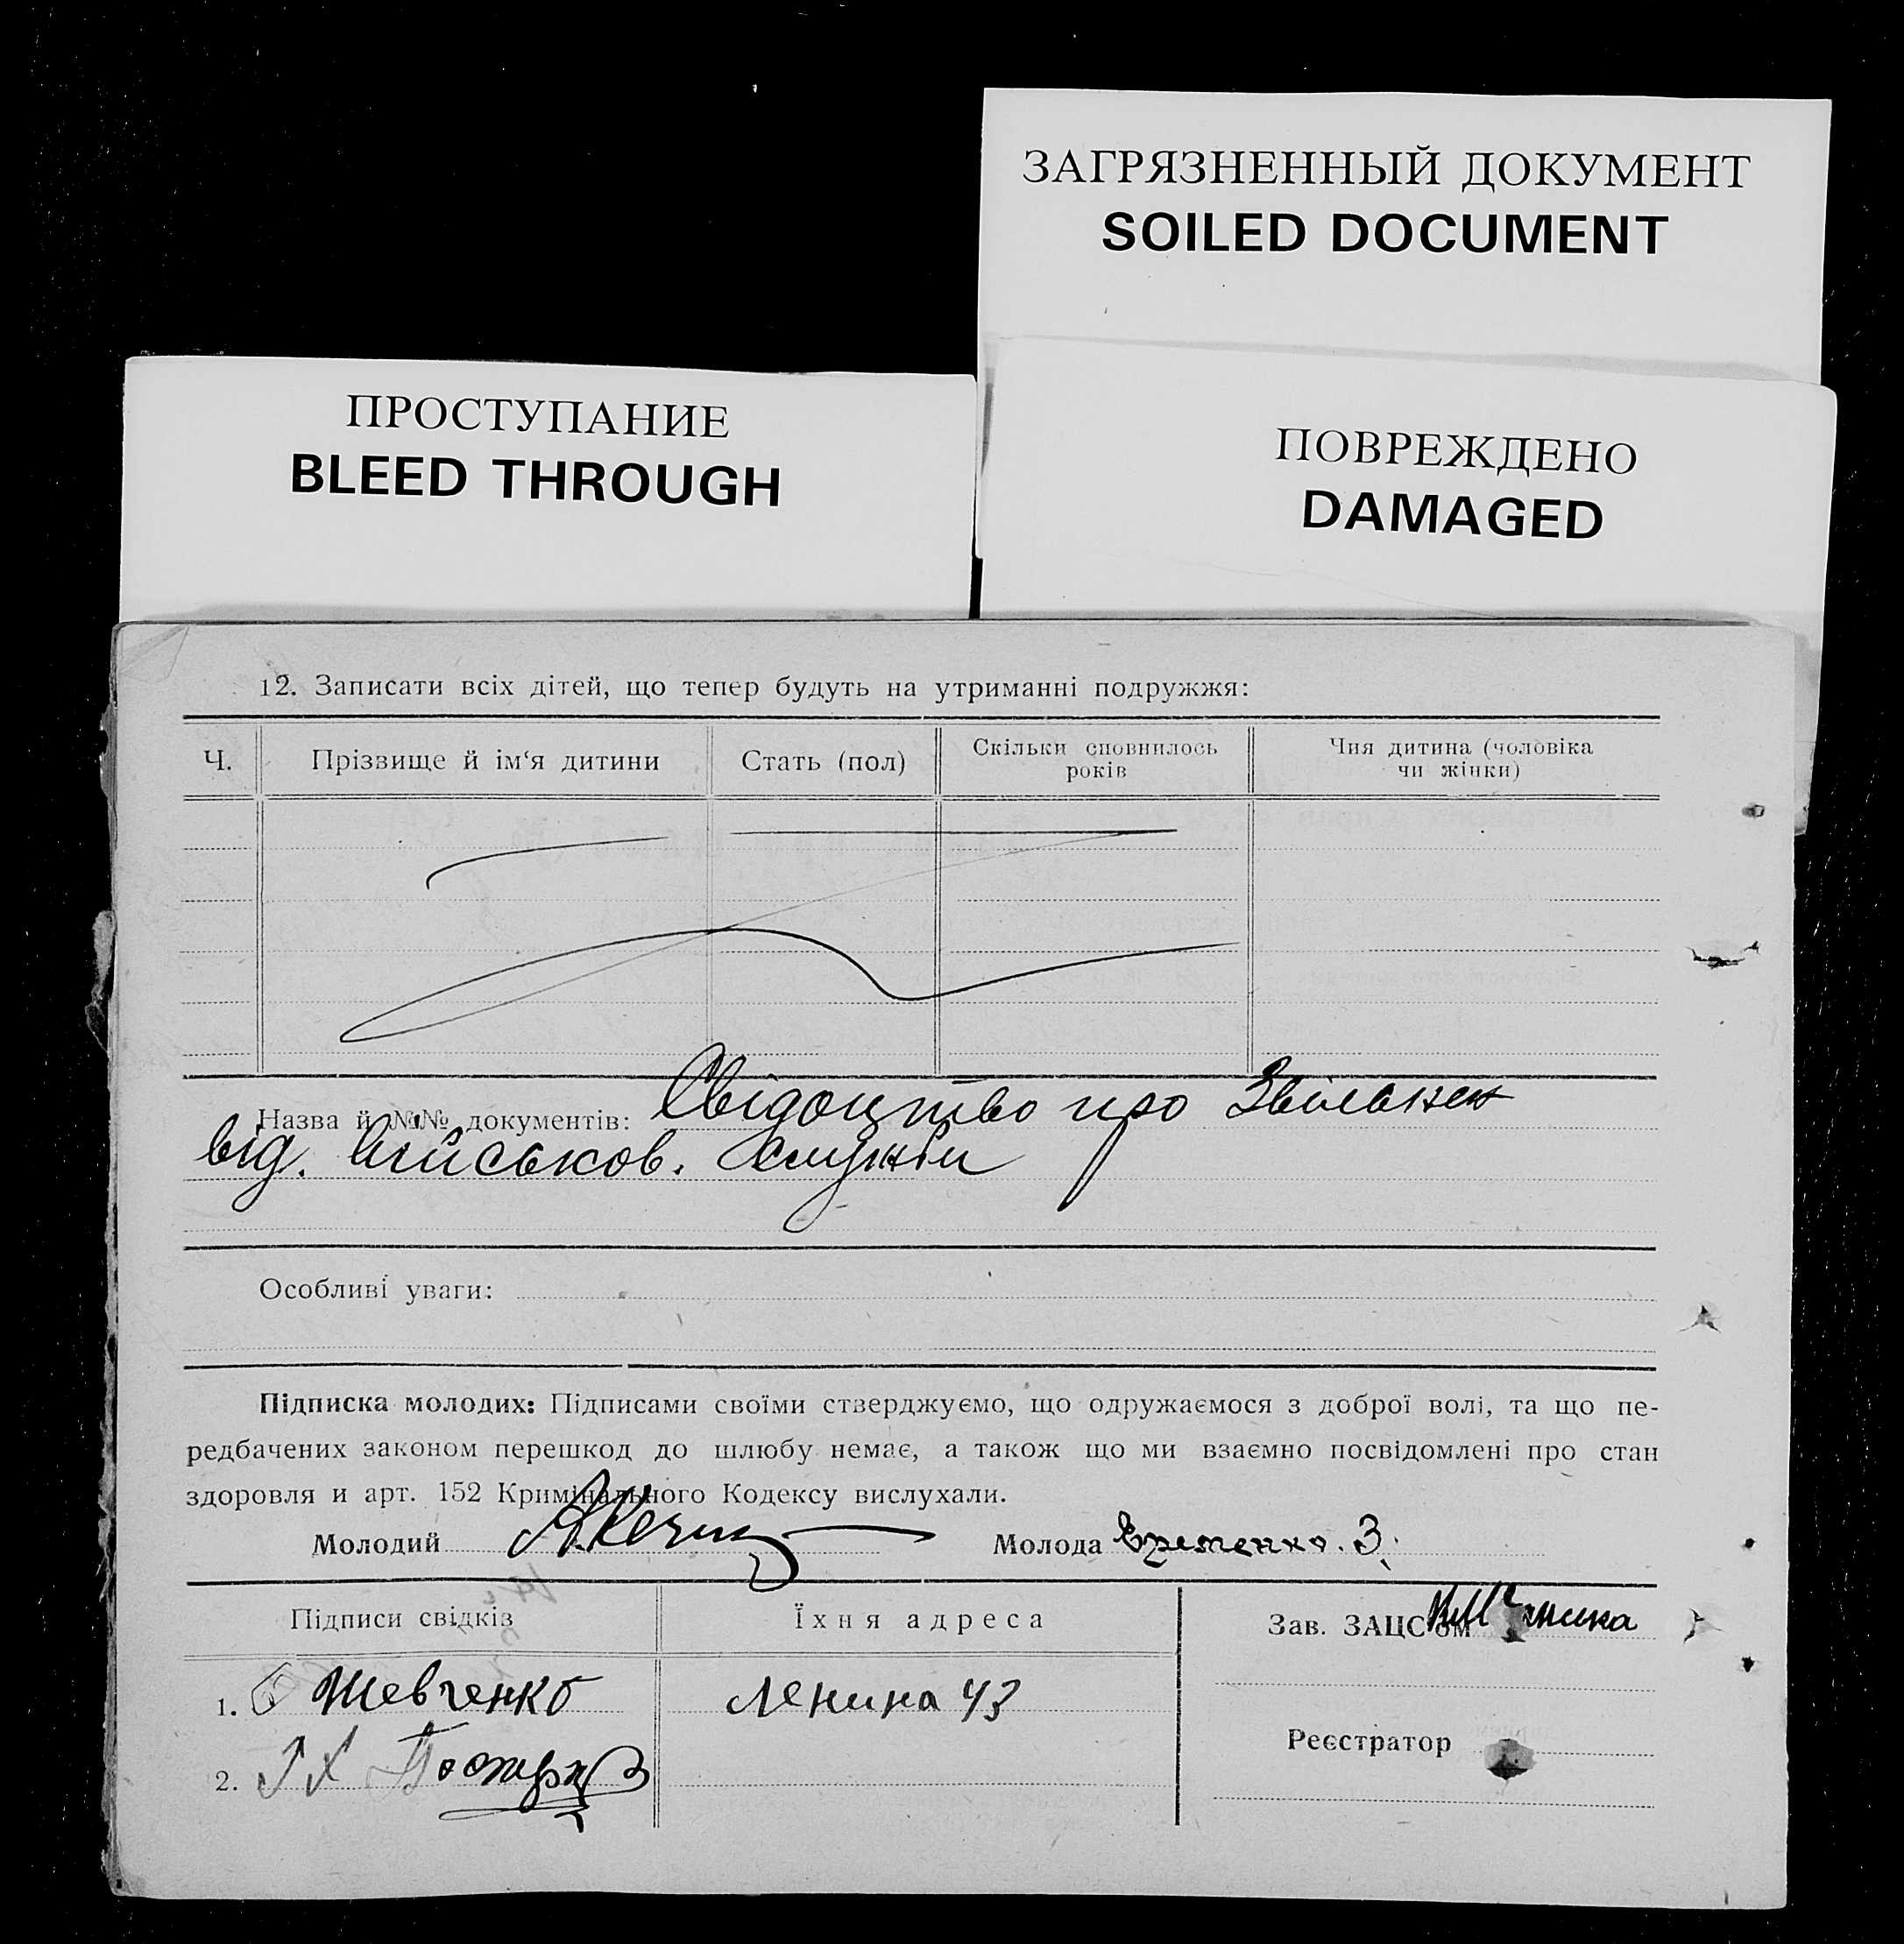 ЗАГРЯЗНЕННЫЙ ДОКУМЕНТ
SOILED DOCUMENT
ПРОСТУПАНИЕ
BLEED THROUGH
ПОВРЕЖДЕНО
DAMAGED
12. Записати всіх дітей, що тепер будуть на утриманні подружжя:
Ч. Прізвище й ім‘я дитини Стать (пол) Скільки сповнилось років Чия дитина (чоловіка чи жінки)
Назва й №№ документів: Свідоцтво про
від. військов.
Особливі уваги:
Підписка молодих: Підписами своїми стверджуємо, що одружаємося з доброї волі, та що пе-
редбачених законом перешкод до шлюбу немає, а також що ми взаємно посвідомлені про стан
здоровля и арт. 152 Кримінального Кодексу вислухали.
Молодий Молода Еременко. З.
Підписи свідків Їхня адреса Зав. ЗАЦС'ом
1. Шевченко Ленина 43
Реєстратор
2.